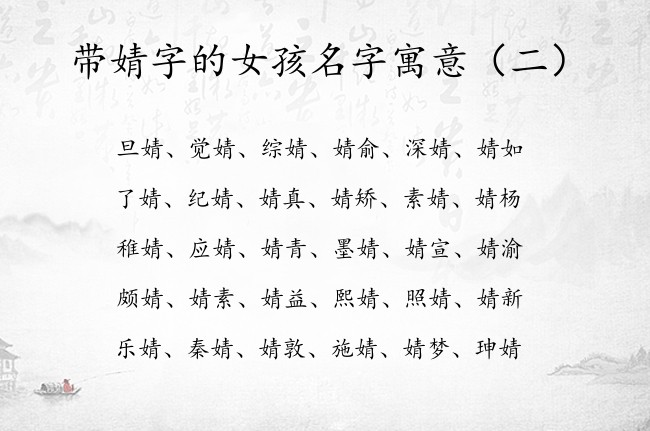 带婧字的女孩名字寓意（二）
旦婧、觉婧、综婧、婧俞、深婧、婧如
了婧、纪婧、婧真、婧矫、素婧、婧杨
稚婧、应婧、婧青、墨婧、婧宣、婧渝
颇婧、婧素、婧益、熙婧、照婧、婧新
乐婧、秦婧、婧敦、施婧、婧梦、珅婧